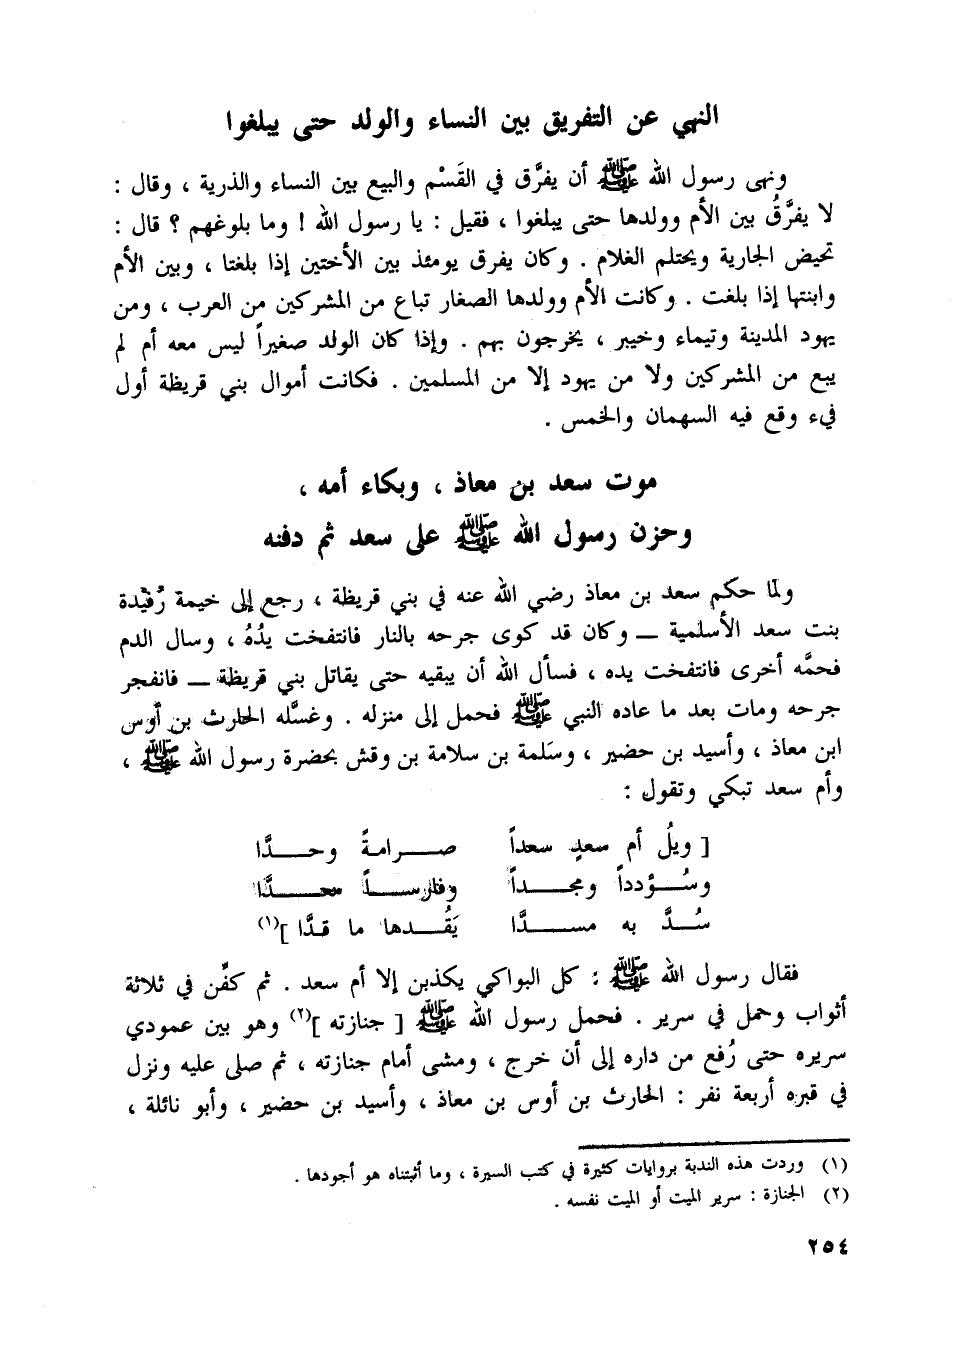 النهي عن التفريق بين النساء والولد حتى يبلغوا
ونهى رسول الله ﷺ أن يفرَّق في القَسْم والبيع بين النساء والذرية ، وقال :
لا يفرَّقُ بين الأم وولدها حتى يبلغوا ، فقيل : يا رسول الله ! وما بلوغهم ؟ قال :
تحيض الجارية ويحتلم الغلام . وكان يفرق يومئذ بين الأختين إذا بلغتا ، وبين الأم
وابنتها إذا بلغت . وكانت الأم وولدها الصغار تباع من المشركين من العرب ، ومن
يهود المدينة وتيماء وخيبر ، يخرجون بهم . وإذا كان الولد صغيراً ليس معه أم لم
يبع من المشركين ولا من يهود إلا من المسلمين . فكانت أموال بني قريظة أول
فيء وقع فيه السهمان والخمس .
موت سعد بن معاذ ، وبكاء أمه ،
وحزن رسول الله ﷺ على سعد ثم دفنه
ولما حكم سعد بن معاذ رضي الله عنه في بني قريظة ، رجع إلى خيمة رُفَيْدة
بنت سعد الأسلمية — وكان قد كوى جرحه بالنار فانتفخت يدُهُ ، وسال الدم
فحمَّه أخرى فانتفخت يده ، فسأل الله أن يبقيه حتى يقاتل بني قريظة — فانفجر
جرحه ومات بعد ما عاده النبي ﷺ فحمل إلى منزله . وغسَّله الحارث بن أوس
ابن معاذ ، وأسيد بن حضير ، وسَلمة بن سلامة بن وقش بحضرة رسول الله ﷺ ،
وأم سعد تبكي وتقول :
[ ويلُ أم سعدٍ سعداً صـرامةً وحـدَّا
وسُـؤدداً ومجـداً وفارسـاً معـدَّا
سُـدَّ به مسـدَّا يَقُـدها ما قدَّا ](١)
فقال رسول الله ﷺ : كل البواكي يكذبن إلا أم سعد . ثم كفِّن في ثلاثة
أثواب وحمل في سرير . فحمل رسول الله ﷺ [ جنازته ](٢) وهو بين عمودي
سريره حتى رُفع من داره إلى أن خرج ، ومشى أمام جنازته ، ثم صلى عليه ونزل
في قبره أربعة نفر : الحارث بن أوس بن معاذ ، وأسيد بن حضير ، وأبو نائلة ،
(١) وردت هذه الندبة بروايات كثيرة في كتب السيرة ، وما أثبتناه هو أجودها .
(٢) الجنازة : سرير الميت أو الميت نفسه .
٢٥٤